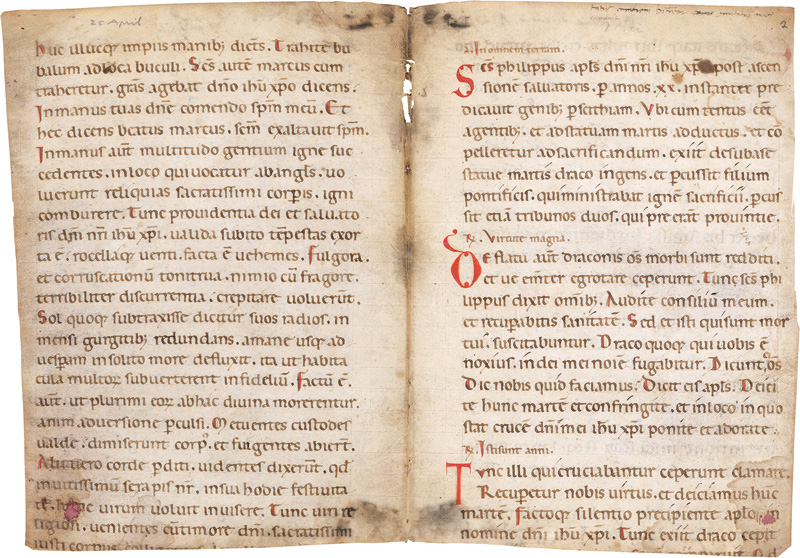 25 April
huc illucq; impiis manib; dicētes. Trahite bu
balum ad loca buculi. Scs̄ autē marcus cum
traheretur. gras̄ agebat dn̄o ihū xp̄o dicens.
In manus tuas dn̄e comendo spm̄ meū. Et
hec dicens beatus marcus. scm̄ exaltavit spm̄.
In manus aut̄ multitudo gentium igne suc
cedentes. in loco qui vocatur abangl̄s. vo
luerunt reliquias sacratissimi corꝑis. igni
comburere. Tunc providentia dei et salvato
ris dn̄i nr̄i ihū xp̄i. valida subito tēpestas exor
ta ē. rocellaq; venti. facta ē vehemēs. Fulgora.
et corruscationū tonitrua. nimio cū fragore.
terribiliter discurrentia. crepitare voluerūt.
Sol quoq; subtraxisse dicitur suos radios. in
mensi gurgitib; redundans. a mane usq; ad
vesꝑam insolito more defluxit. ita ut habita
cula multoꝝ subverterent infideliū. Factū ē.
aut̄. ut plurimi eoꝝ ab hac divina morerentur.
animadversione ꝑculsi. Metuentes custodes
valde. dimiserunt corp'. et fugentes abierr̄.
Alii vero corde ꝑditi. videntes dixerūt. qd̄
invitissimū serapis nr̄. in sua hodie festivita
te. hunc virum voluit invisere. Tunc viri re
ligiosi. venientes cū timore dni. sacratissimi
iusti corpus
2
In omnem terram.
Scs̄ philippus apls̄ dn̄i nr̄i ihū xp̄i post ascen
sionē salvatoris. ꝑ annos .xx. instanter pre
dicavit gentib; ꝑ scithiam. Ubi cum tentus eēt
a gentib;. et ad statuam martis adductus. et cō
pelleretur ad sacrificandum. exiit de sub base
statue martis draco ingens. et percussit filium
pontificis. qui ministrabat ignē sacrificii. ꝑcus
sit etiā tribunos duos. qui pre erant provintie.
℟. Virtute magna.
De flatu aut̄ draconis os̄ morbi sunt redditi.
et ve em̄ter egrotare ceperunt. Tunc scs̄ phi
lippus dixit omnib;. Audite consiliū meum.
et recuꝑabitis sanitatē. Sed et isti qui sunt mor
tui. suscitabuntur. Draco quoq; qui vobis ē
noxius. in dei mei noīe fugabitur. Dicunt os̄
Dic nobis quid faciamus. Dicit eis apls̄. Deici
te hunc martē et confringite. et in loco in quo
stat crucē dn̄i mei ihū xp̄i ponite et adorate.
℟. Isti sunt anni.
Tunc illi qui cruciabantur ceperunt clamare.
Recuꝑetur nobis virtus. et deiciamus hūc
martē. Factoq; silentio precipiente aplo. in
nomine dn̄i ihū xp̄i. Tunc exiit draco